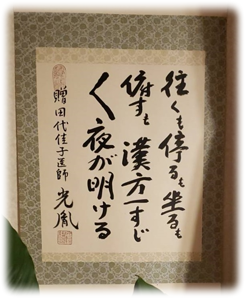 往くも停るも坐るも
俯すも漢方一すじ
く夜が明ける
贈田代佳子医師
光胤